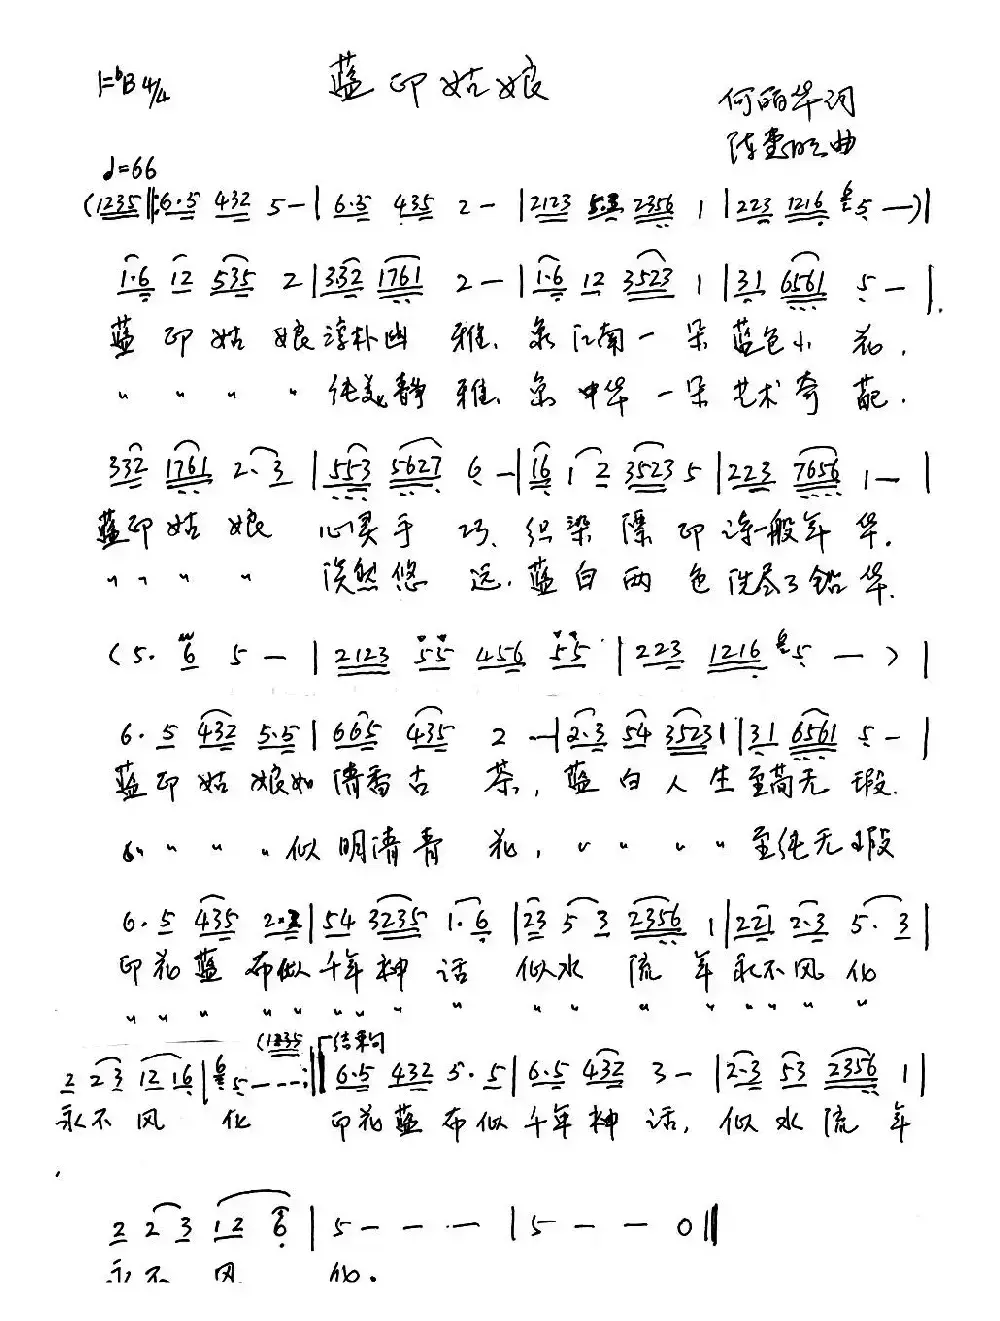 1=♭B 4/4
蓝印姑娘
何丽华词
曲
♩=66
(1235‖:6·5 432 5-|6·5 435 2-|2123 5·3 2356 1|223 1216 6 5-)|
1·6 12 535 2|332 1761 2-|1·6 12 3523 1|31 6561 5-|
蓝印姑娘淳朴幽雅、象江南一朵蓝色小花,
〃〃〃〃纯美静雅、象中华一朵艺术奇葩.
332 1761 2·3|553 5627 6-|16 1 2 3523 5|223 7656 1-|
蓝印姑娘 心灵手巧、织染漂印诗一般年华.
〃〃〃〃 淡然悠远.蓝白两色洗尽了铅华.
(5·6 5-|2123 55 456 55|223 1216 6 5-)|
6·5 432 5·5|665 435 2-|2·3 54 3523 1|31 6561 5-|
蓝印姑娘如清香古茶,蓝白人生至简无瑕.
〃〃〃〃似明清青花,〃〃〃〃至纯无瑕
6·5 435 2·2|54 3235 1·6|23 5 3 2356 1|221 2·3 5·3|
印花蓝布似千年神话 似水流年永不风化
〃〃〃〃〃〃〃〃〃〃〃〃〃〃〃〃〃
(1235 结束句
2 2 3 12 16|6 5---:‖6·5 432 5·5|6·5 432 3-|2·3 53 2356 1|
永不风化 印花蓝布似千年神话,似水流年
2 2 3 1 2 6|5---|5--0‖
永不风化.